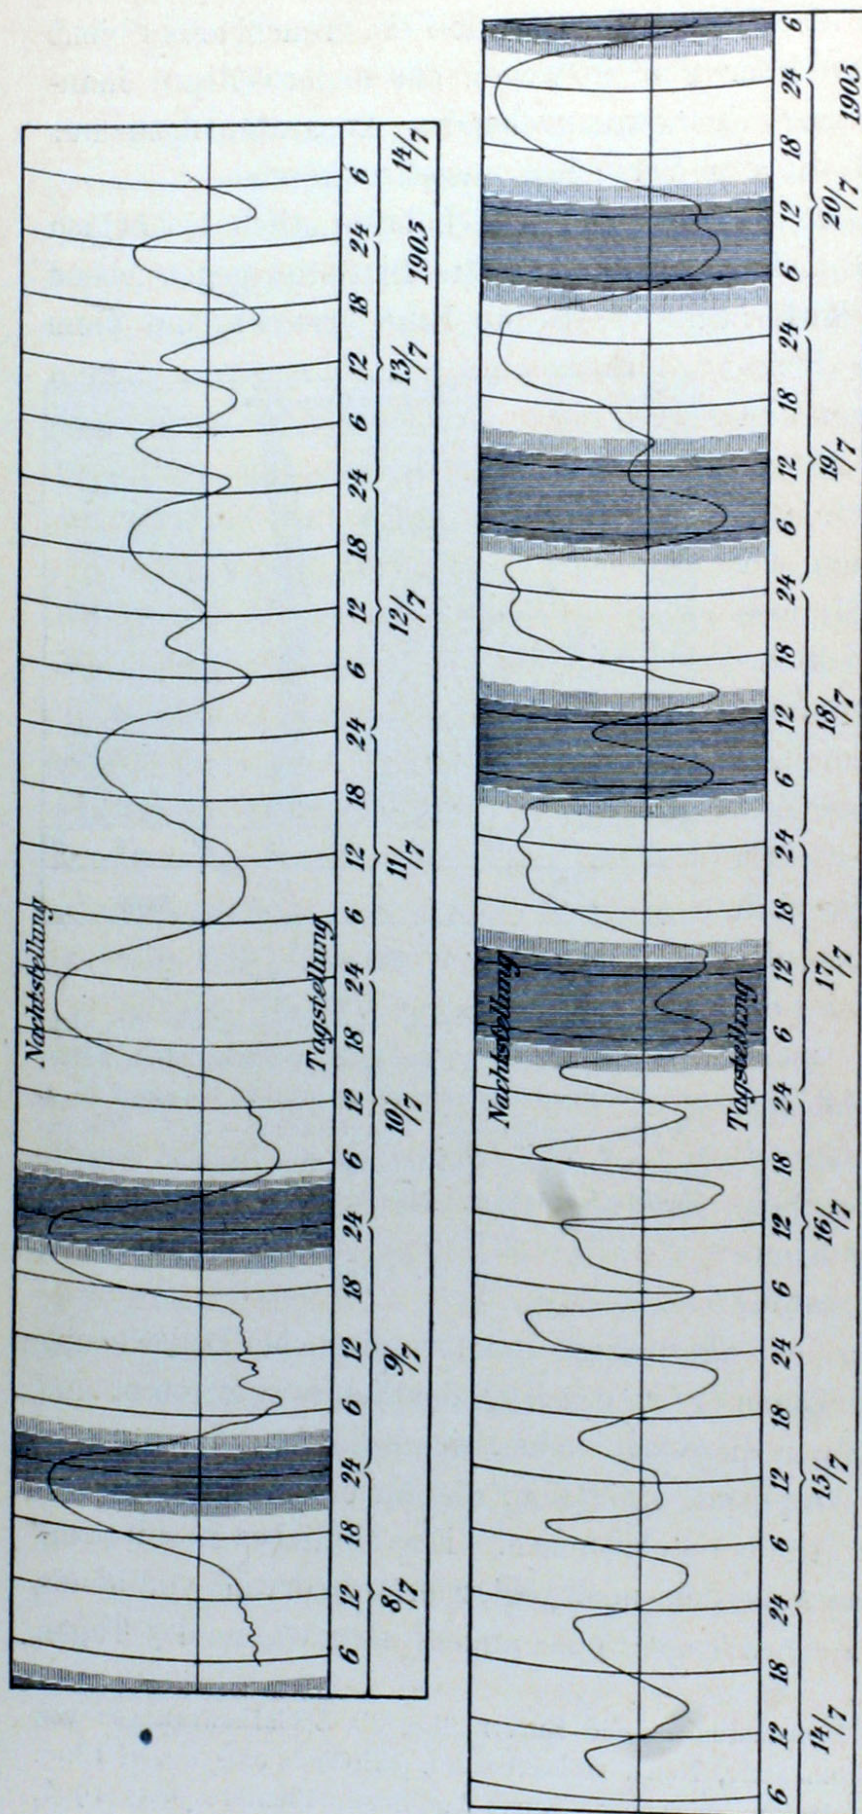 Nachtstellung
Tagstellung
6 12 18 24 6 12 18 24 6 12 18 24 6 12 18 24 6 12 18 24 6 12 18 24 6
8/7 9/7 10/7 11/7 12/7 13/7 1905 14/7
Nachtstellung
Tagstellung
6 12 18 24 6 12 18 24 6 12 18 24 6 12 18 24 6 12 18 24 6 12 18 24 6 12 18 24 6
14/7 15/7 16/7 17/7 18/7 19/7 20/7 1905